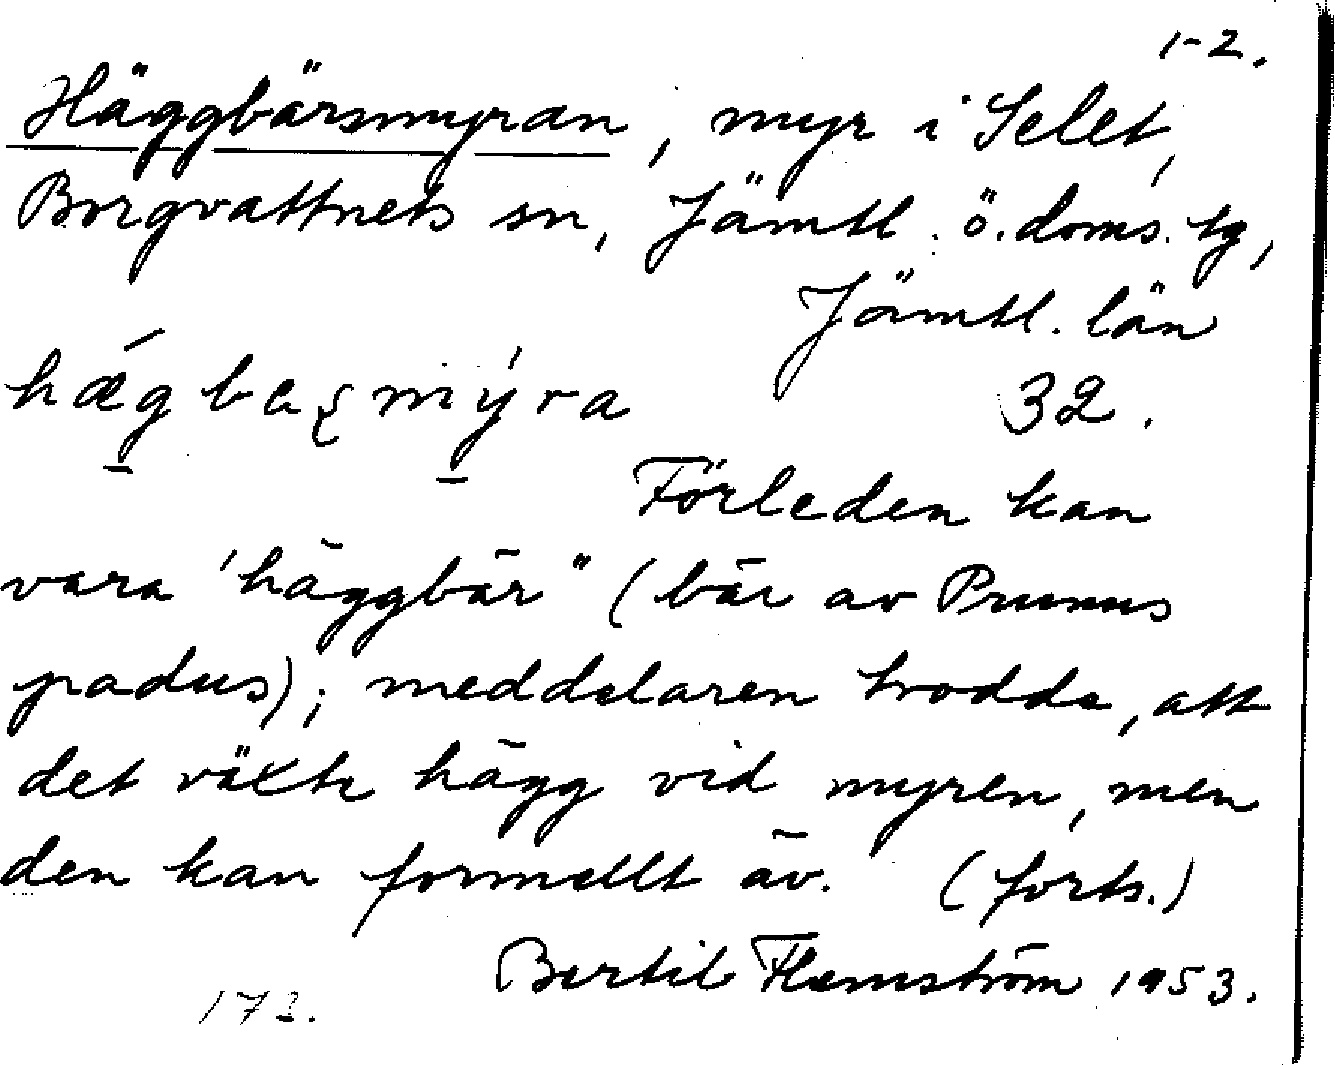 1-2.
Häggbärsmyran, myr i Selet,
Borgvattnets sn, Jämtl. ö. doms. tg,
Jämtl. län
32.
Förleden kan
vara 'häggbär" (bär av Prunus
padus); meddelaren trodde, att
det växte hägg vid myren, men
den kan formellt äv. (forts.)
Bertil Flemström 1953.